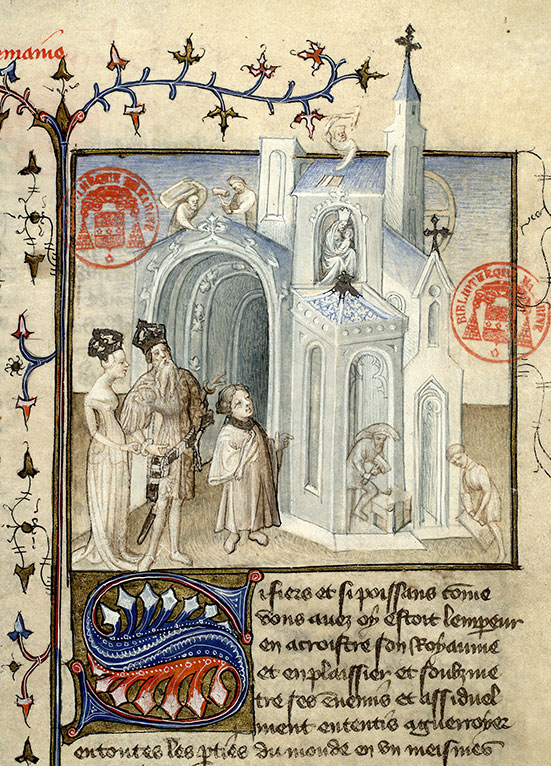 emaine
BIBLIOTHEQUE MAZARINE
BIBLIOTHEQUE MAZARINE
Si fiers et si poissans come
vous auez oy estoit lempereur
en acroistre son Royaume
et en plaissier et soubzme
tre ses ennemis et assiduel
ment ententis a guerroyer
en toutes les parties du monde en vn meismes